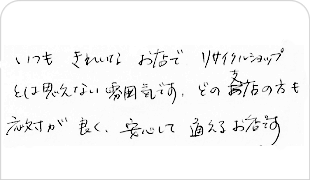 いつも きれいな お店で リサイクルショップ
とは思えない雰囲気です。どの支店の方も
応対が良く、安心して通えるお店です